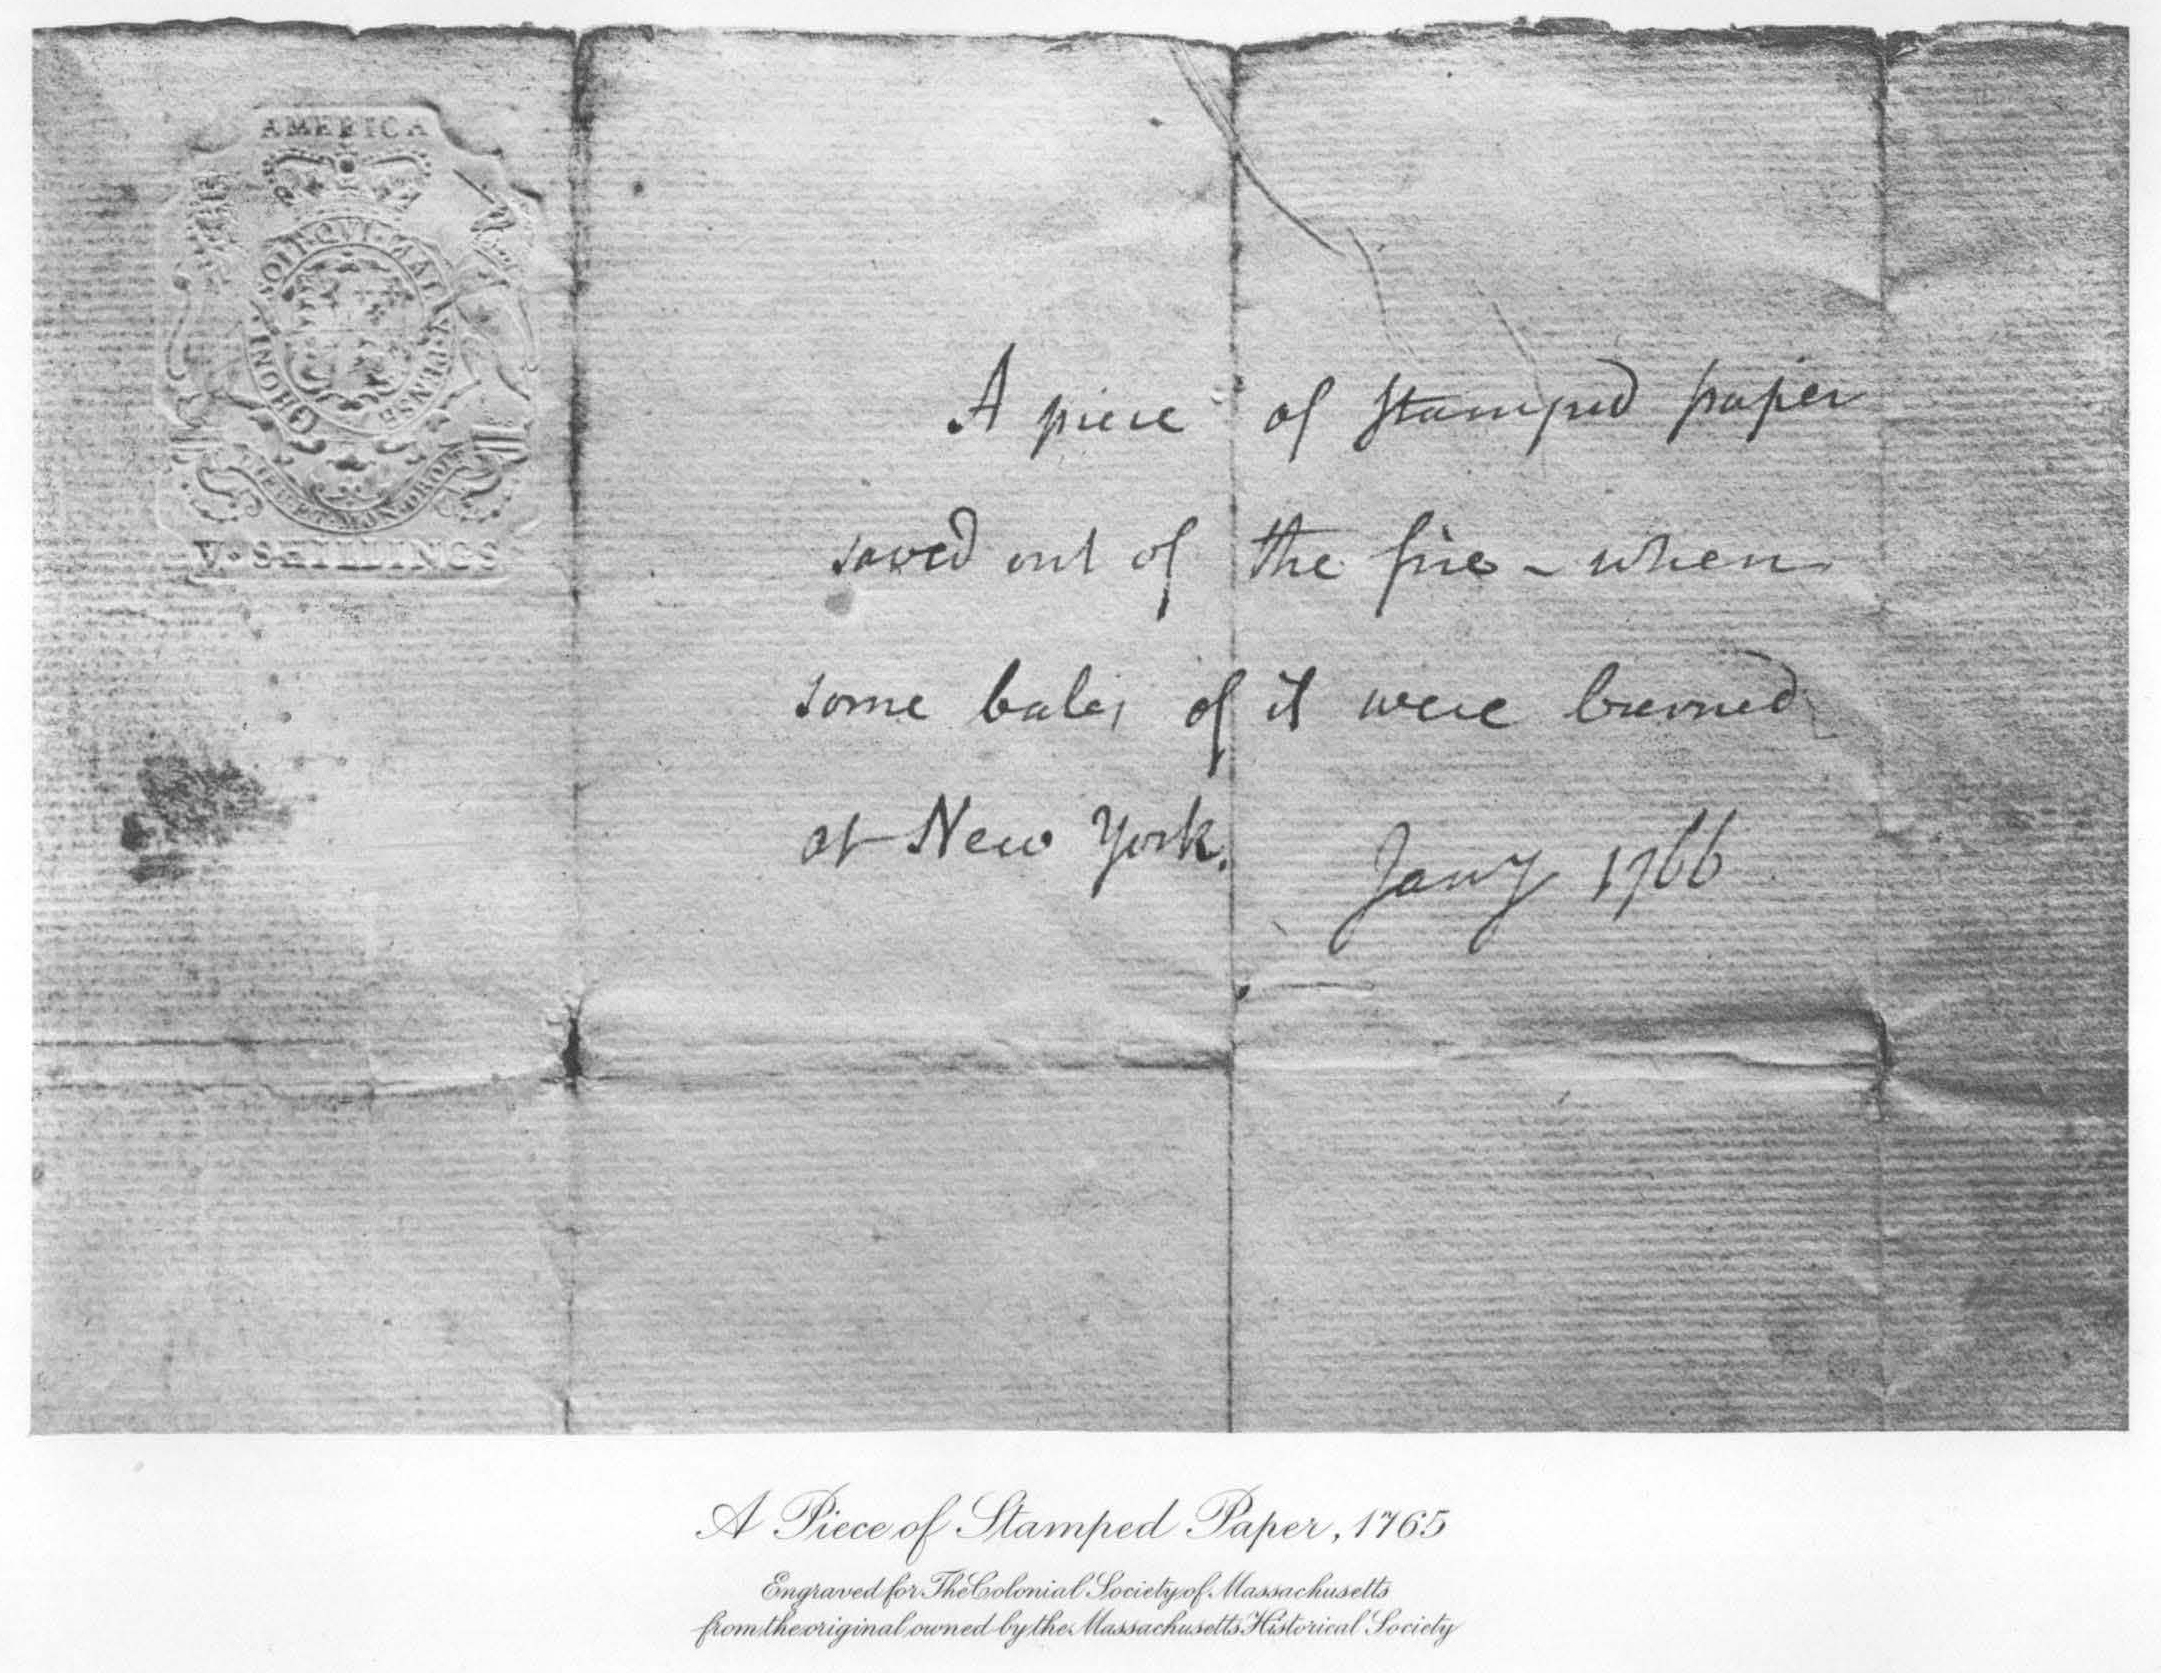 AMERICA
HONI SOIT QVI MAL Y PENSE
DIEU ET MON DROIT
V·SHILLINGS
A piece of stamped paper
saved out of the fire – when
some bales of it were burned
at New York. Janry 1766
A Piece of Stamped Paper, 1765
Engraved for The Colonial Society of Massachusetts
from the original owned by the Massachusetts Historical Society